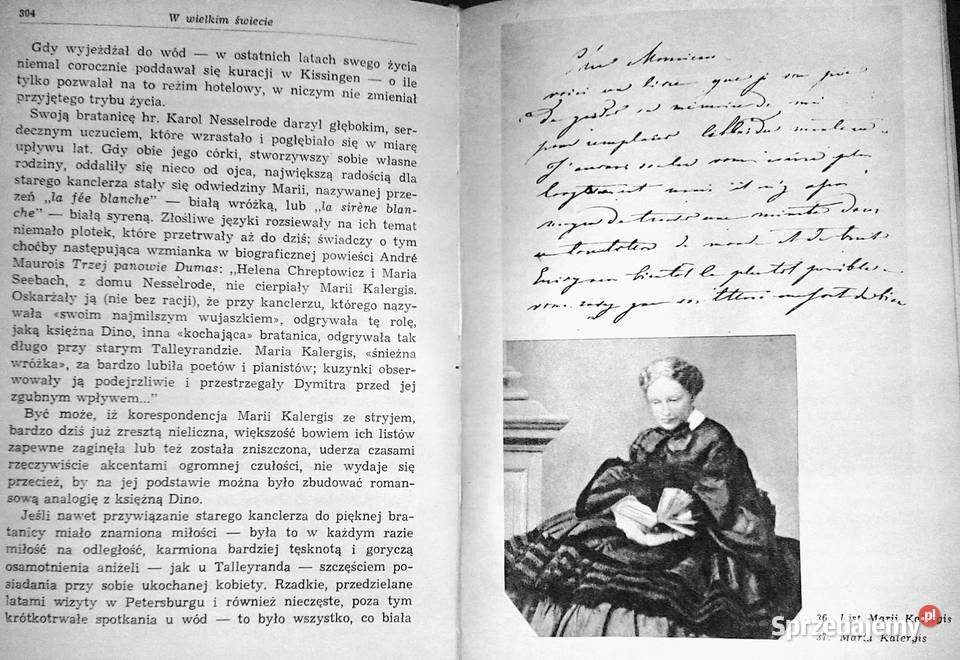 304
W wielkim świecie
Gdy wyjeżdżał do wód — w ostatnich latach swego życia
niemal corocznie poddawał się kuracji w Kissingen — o ile
tylko pozwalał na to reżim hotelowy, w niczym nie zmieniał
przyjętego trybu życia.
Swoją bratanicę hr. Karol Nesselrode darzył głębokim, ser-
decznym uczuciem, które wzrastało i pogłębiało się w miarę
upływu lat. Gdy obie jego córki, stworzywszy sobie własne
rodziny, oddaliły się nieco od ojca, największą radością dla
starego kanclerza stały się odwiedziny Marii, nazywanej prze-
zeń „la fée blanche" — białą wróżką, lub „la sirène blan-
che" — białą syreną. Złośliwe języki rozsiewały na ich temat
niemało plotek, które przetrwały aż do dziś; świadczy o tym
choćby następująca wzmianka w biograficznej powieści André
Maurois Trzej panowie Dumas: „Helena Chreptowicz i Maria
Seebach, z domu Nesselrode, nie cierpiały Marii Kalergis.
Oskarżały ją (nie bez racji), że przy kanclerzu, którego nazy-
wała «swoim najmilszym wujaszkiem», odgrywała tę rolę,
jaką księżna Dino, inna «kochająca» bratanica, odgrywała tak
długo przy starym Talleyrandzie. Maria Kalergis, «śnieżna
wróżka», za bardzo lubiła poetów i pianistów; kuzynki obser-
wowały ją podejrzliwie i przestrzegały Dymitra przed jej
zgubnym wpływem..."
Być może, iż korespondencja Marii Kalergis ze stryjem,
bardzo dziś już zresztą nieliczna, większość bowiem ich listów
zapewne zaginęła lub też została zniszczona, uderza czasami
rzeczywiście akcentami ogromnej czułości, nie wydaje się
przecież, by na jej podstawie można było zbudować roman-
sową analogię z księżną Dino.
Jeśli nawet przywiązanie starego kanclerza do pięknej bra-
tanicy miało znamiona miłości — była to w każdym razie
miłość na odległość, karmiona bardziej tęsknotą i goryczą
osamotnienia aniżeli — jak u Talleyranda — szczęściem po-
siadania przy sobie ukochanej kobiety. Rzadkie, przedzielane
latami wizyty w Petersburgu i również nieczęste, poza tym
krótkotrwałe spotkania u wód — to było wszystko, co biała
Monsieur
voici un livre que je
36. List Marii Kalergis
37. Maria Kalergis
Sprzedajemy.pl